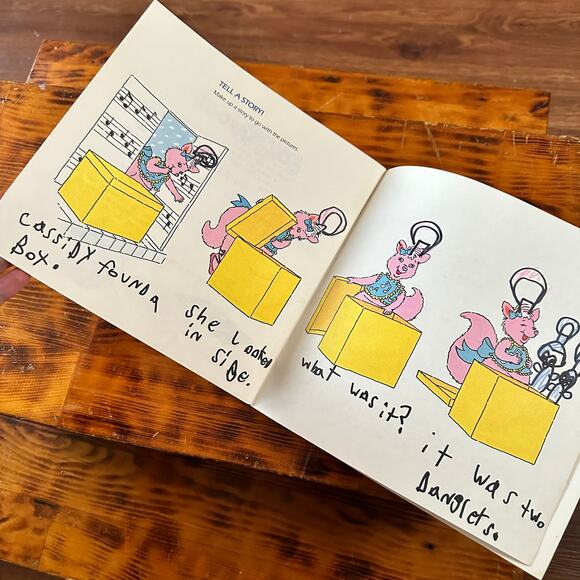 TELL A STORY!
Make up a story to go with the pictures.
cassiDy founD A
Box.
she looked
in siDe.
what was it?
it was two
Danglets.